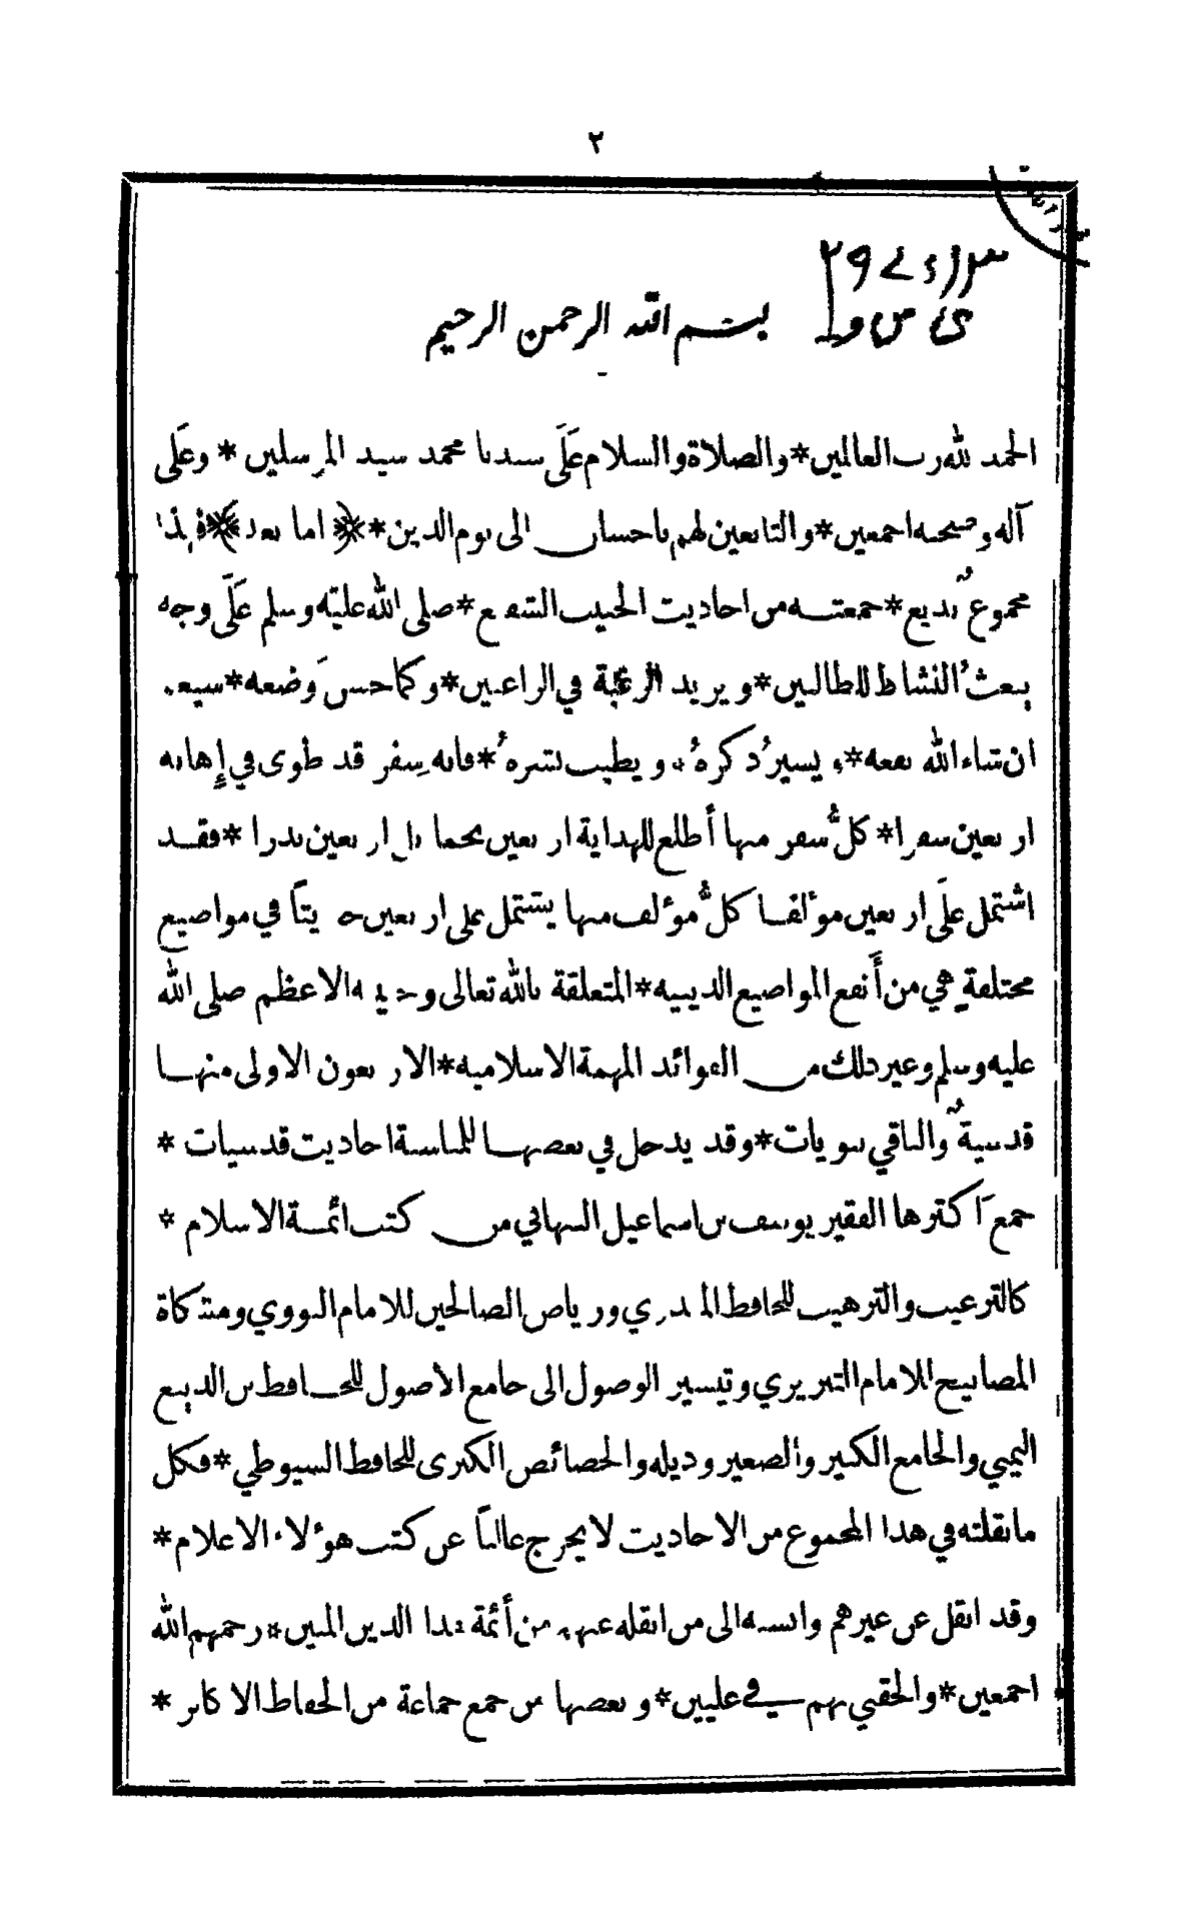 ٢
بسم الله الرحمن الرحيم
الحمد لله رب العالمين * والصلاة والسلام عَلَى سيدنا محمد سيد المرسلين * وعَلَى
آله وصحبه اجمعين * والتابعين لهم باحسان الى يوم الدين * ﴿ اما بعد ﴾ فهذا
مجموعٌ بديع * جمعته من احاديث الحبيب الشفيع * صلى الله عليه وسلم عَلَى وجه
يبعثُ النشاط للطالبين * ويزيد الرغبة في الراغبين * وكما حسن وَضعه * سيعم
ان شاء الله نفعه * ويسير ذكرهُ * ويطيب نشرهُ * فانه سِفر قد طوى في إِهابه
اربعين سفرا * كلُّ سفر منها أطلع للهداية اربعين نجما بل اربعين بدرا * فقد
اشتمل عَلَى اربعين مؤلفا كلُّ مؤلف منها يشتمل على اربعين حديثاً في مواضيع
مختلفة هي من أَنفع المواضيع الدينية * المتعلقة بالله تعالى وحبيبه الاعظم صلى الله
عليه وسلم وغير ذلك من الفوائد المهمة الاسلامية * الاربعون الاولى منها
قدسيةٌ والباقي نبويات * وقد يدخل في بعضها للمناسبة احاديث قدسيات *
جمعَ اكثرها الفقير يوسف بن اسماعيل النبهاني من كتب ائمة الاسلام *
كالترغيب والترهيب للحافظ المنذري ورياض الصالحين للامام النووي ومشكاة
المصابيح للامام التبريزي وتيسير الوصول الى جامع الأصول للحافظ بن الديبع
اليمني والجامع الكبير والصغير وذيله والخصائص الكبرى للحافظ السيوطي * فكل
ما نقلته في هذا المجموع من الاحاديث لا يخرج غالباً عن كتب هؤلاء الاعلام *
وقد انقل عن غيرهم وانسبه الى من انقله عنه من أئمة هذا الدين المبين * رحمهم الله
اجمعين * والحقني بهم في عليين * وبعضها من جمع جماعة من الحفاظ الاكابر *